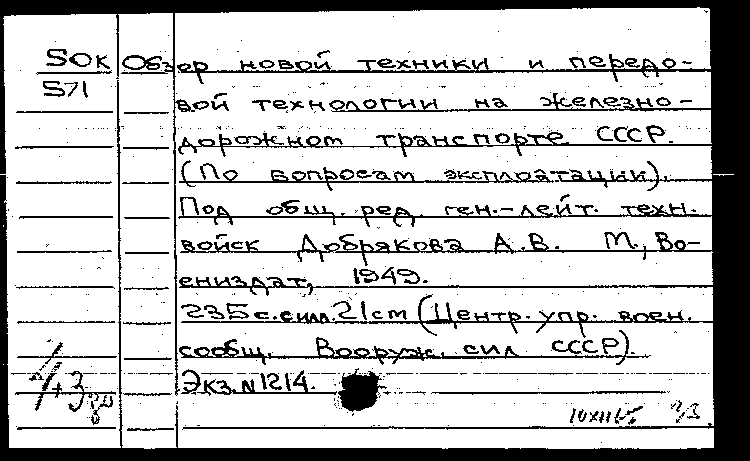 50к Обзор новой техники и передо-
571 вой технологии на железно-
дорожном транспорте СССР.
(По вопросам эксплоатации).
Под общ. ред. ген.-лейт. техн.
войск Добрякова А.В. М., Во-
ениздат, 1949.
235 с. с илл. 21 cm (Центр. упр. воен.
сообщ. Вооруж. сил СССР).
Экз. N 1214.